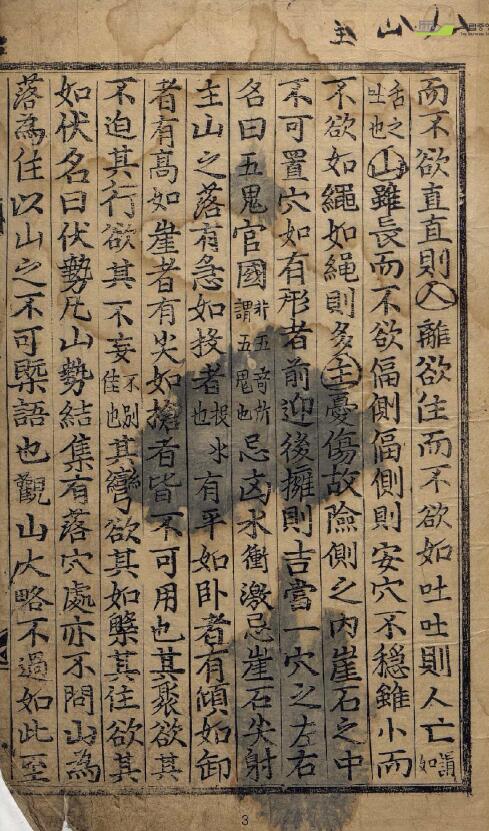 人
山
主
국립중앙
而不欲直直則人離欲住而不欲如吐吐則人亡如
舌之吐也山雖長而不欲偪側偪側則安穴不穩雖小而
不欲如繩如繩則多主憂傷故險側之内崖石之中
不可置穴如有形者前迎後擁則吉當一穴之左右
名曰五鬼官國非五竒所謂五鬼也忌凶水衝激忌崖石尖射
主山之落有急如投者也有平如卧者有傾如卸
者有高如崖者有尖如槍者皆不可用也其聚欲其
不迫其行欲其不妄不別住也其彎欲其如檠其住欲其
如伏名曰伏勢凡山勢結集有落穴處亦不問山為
落為住以山之不可槩語也觀山大略不過如此至
3